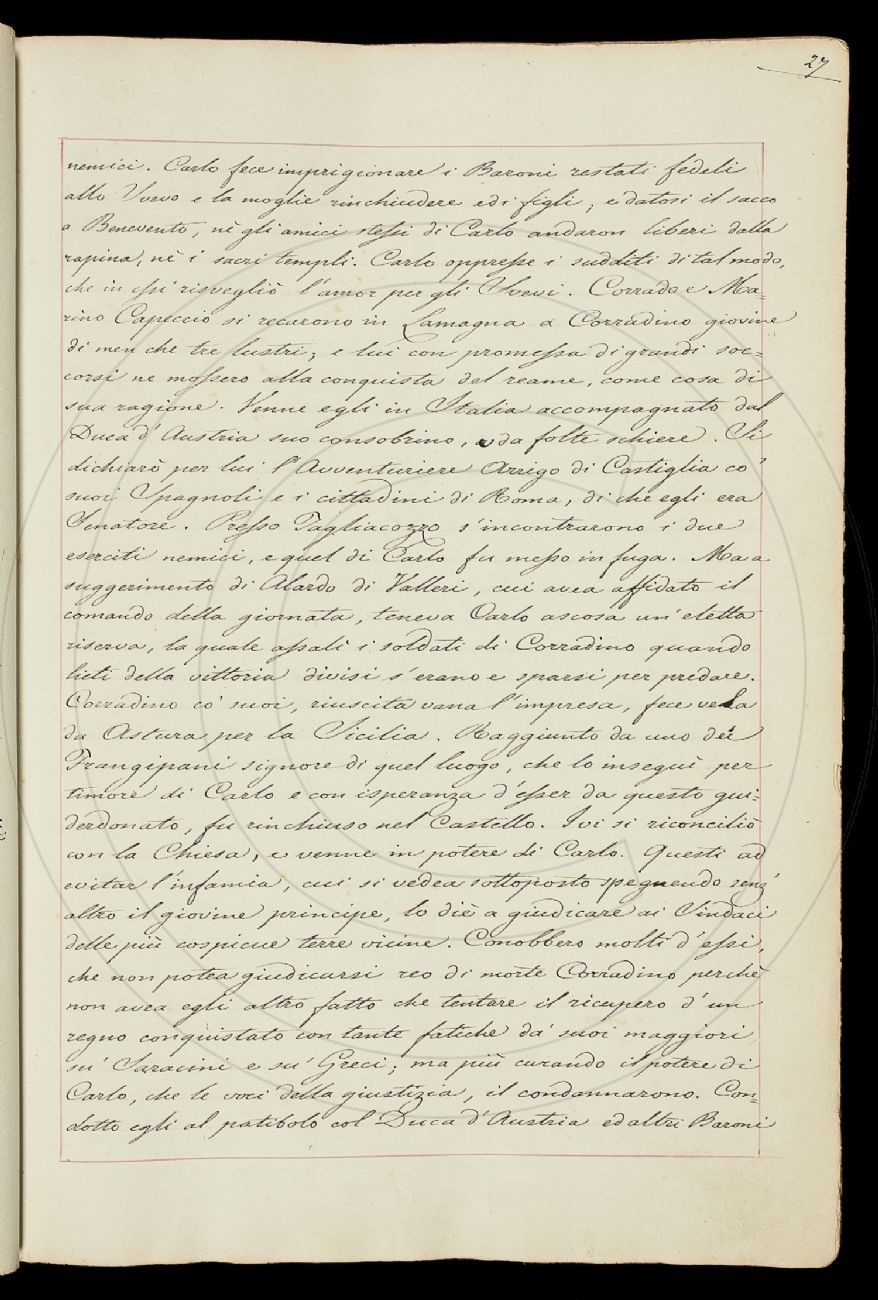 27
nemici. Carlo fece imprigionare i Baroni restati fedeli
allo Svevo e la moglie rinchiudere ed i figli; e datosi il sacco
a Benevento, nè gli amici stessi di Carlo andaron liberi dalla
rapina, nè i sacri templi. Carlo oppresse i sudditi di tal modo,
che in essi risvegliò l'amor per gli Svevi. Corrado e Ma=
rino Capeccio si recarono in Lamagna a Corradino giovine
di men che tre lustri; e lui con promessa di grandi soc=
corsi ne mossero alla conquista del reame, come cosa di
sua ragione. Venne egli in Italia accompagnato dal
Duca d'Austria suo consobrino, e da folte schiere. Si
dichiarò per lui l'Avventuriere Arrigo di Castiglia co'
suoi Spagnoli e i cittadini di Roma, di che egli era
Senatore. Presso Tagliacozzo s'incontrarono i due
eserciti nemici, e quel di Carlo fu messo in fuga. Ma a
suggerimento di Alardo di Valleri, cui avea affidato il
comando della giornata, teneva Carlo ascosa un'eletta
riserva, la quale assalì i soldati di Corradino quando
lieti della vittoria divisi s'erano e sparsi per predare.
Corradino co' suoi, riuscita vana l'impresa, fece vela
da Astura per la Sicilia. Raggiunto da uno dei
Frangipani signore di quel luogo, che lo inseguì per
timore di Carlo e con isperanza d'esser da questo gui=
derdonato, fu rinchiuso nel Castello. Ivi si riconciliò
con la Chiesa, e venne in potere di Carlo. Questi ad
evitar l'infamia, cui si vedea sottoposto spegnendo senz'
altro il giovine principe, lo diè a giudicare ai Sindaci
delle più cospicue terre vicine. Conobbero molti d'essi,
che non potea giudicarsi reo di morte Corradino perchè
non avea egli altro fatto che tentare il ricupero d'un
regno conquistato con tante fatiche da' suoi maggiori
su' Saracini e su' Greci; ma più curando il potere di
Carlo, che le voci della giustizia, il condannarono. Con=
dotto egli al patibolo col Duca d'Austria ed altri Baroni